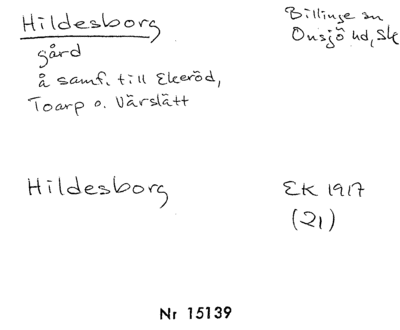 Hildesborg
Billinge sn
gård
Onsjö hd, Sk
å samf. till Ekeröd,
Toarp o. Värslätt
Hildesborg
EK 1917
(21)
Nr 15139